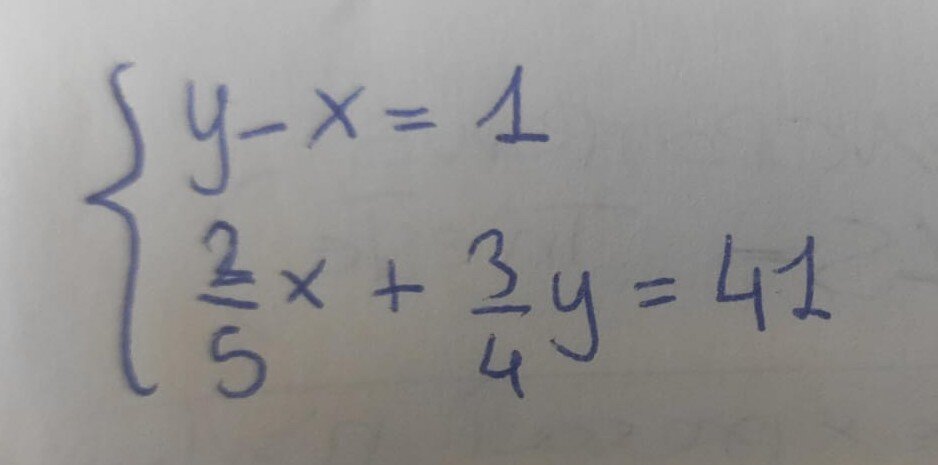 y - x = 1
2/5 x + 3/4 y = 41